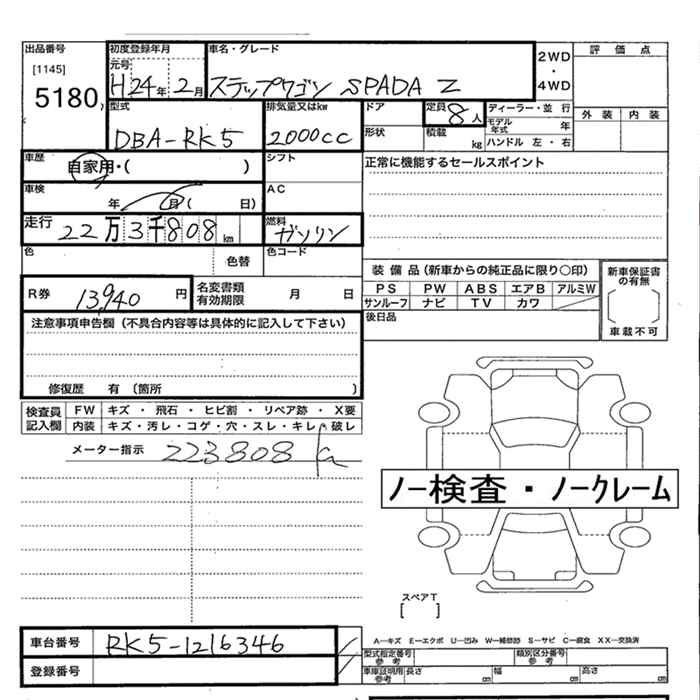 出品番号
[1145]
5180
初度登録年月
元号
H24年 2月
車名・グレード
ステップワゴン SPADA Z
2WD
・
4WD
評価点
外装 内装
型式
DBA-RK5
排気量又はkw
2000cc
ドア
形状
定員 8人
積載 kg
ディーラー・並 行
モデル年式 年
ハンドル 左・右
車歴
自家用・( )
シフト
正常に機能するセールスポイント
車検
年 月( 日)
AC
走行 22万3千808km
燃料
ガソリン
色 色替
色コード
R券 13,940 円
名変書類有効期限 月 日
装備品(新車からの純正品に限り○印)
PS PW ABS エアB アルミW
サンルーフ ナビ TV カワ
後日品
新車保証書の有無
車載不可
注意事項申告欄(不具合内容等は具体的に記入して下さい)
修復歴 有(箇所 )
検査員記入欄
FW キズ・飛石・ヒビ割・リペア跡・X要
内装 キズ・汚レ・コゲ・穴・スレ・キレ・破レ
メーター指示 223808 km
ノー検査・ノークレーム
スペアT
[ ]
車台番号 RK5-1216346
登録番号
A―キズ E―エクボ U―凹み W―補修跡 S―サビ C―腐食 XX―交換済
型式指定番号 参考 類別区分番号 参考
車庫証明用 参考 長さ cm 幅 cm 高さ cm